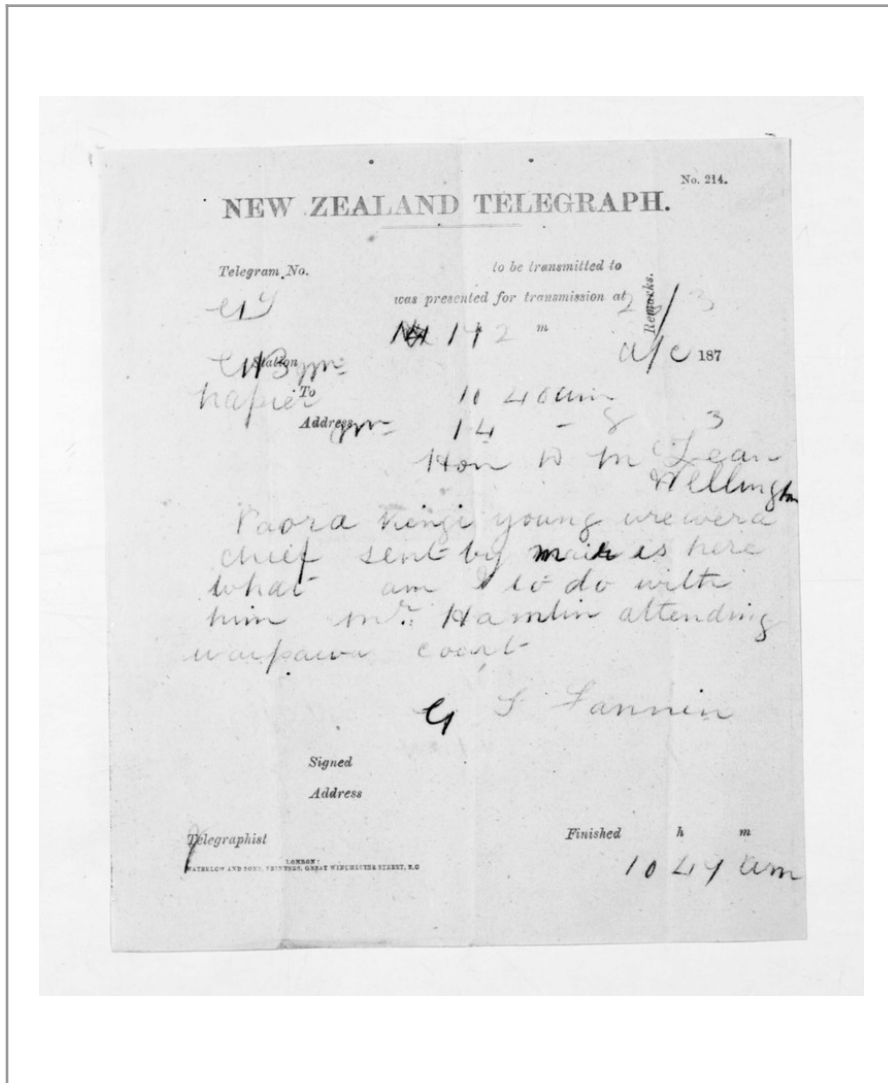 No. 214.
NEW ZEALAND TELEGRAPH.
Telegram No. to be transmitted to
was presented for transmission at
Remarks.
m
Station
a/c 187
Napier To 10 40 am
Address 14 - 8 3
Hon D McLean
Wellington
Paora Kingi young urewera
chief sent by mair is here
what am I to do with
him Mr. Hamlin attending
waipawa court
G T Fannin
Signed
Address
Telegraphist Finished h m
LONDON:
WATERLOW AND SONS, PRINTERS, GREAT WINCHESTER STREET, E.C
10 47 am